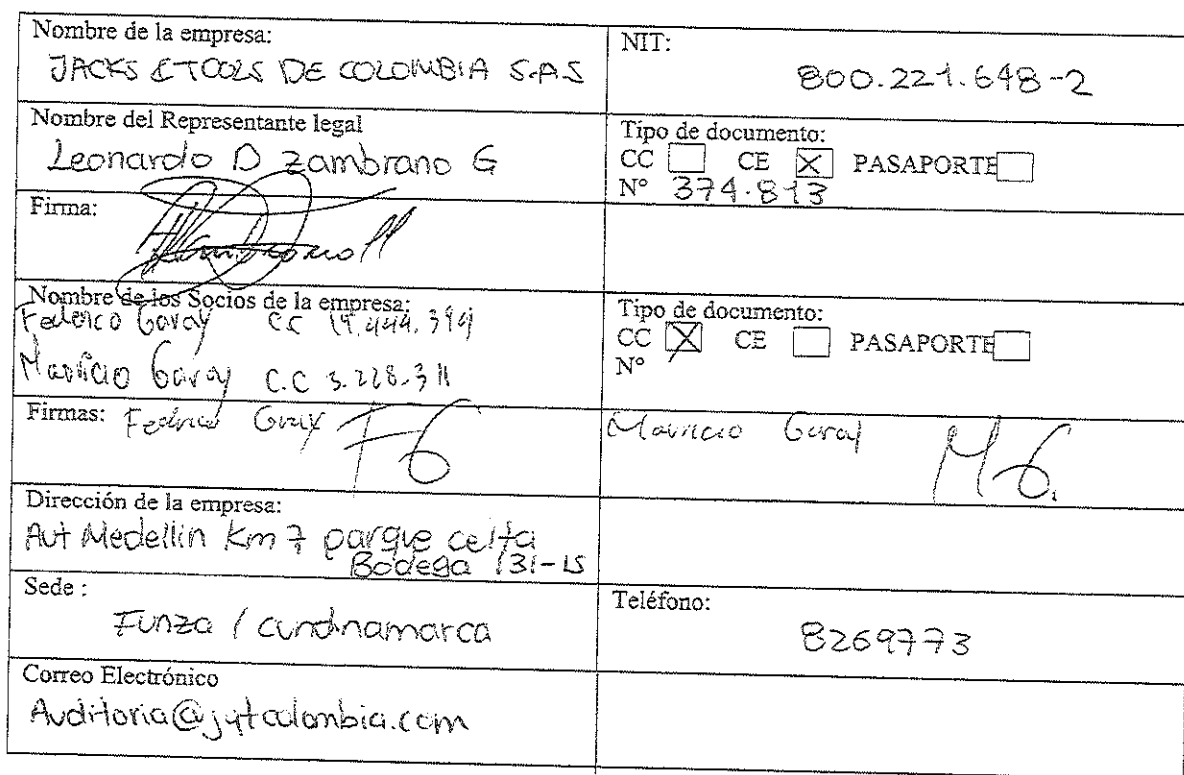 Nombre de la empresa:
JACKS & TOOLS DE COLOMBIA S.A.S
NIT:
800.221.648-2
Nombre del Representante legal
Leonardo D Zambrano G
Tipo de documento:
CC CE X PASAPORTE
N° 374.813
Firma:
Nombre de los Socios de la empresa:
Federico Garay CC 19.444.394
Mauricio Garay C.C 3.228.311
Tipo de documento:
CC X CE PASAPORTE
N°
Firmas: Federico Garay FG
Mauricio Garay MG.
Dirección de la empresa:
Aut Medellin Km 7 parque celta
Bodega 131-15
Sede :
Funza / cundnamarca
Teléfono:
8269773
Correo Electrónico
Auditoria@jytcolombia.com